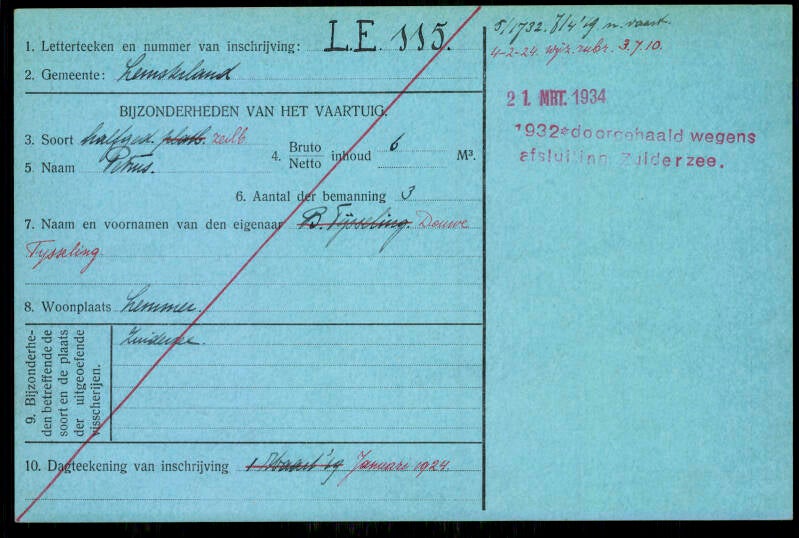 1. Letterteeken en nummer van inschrijving: L.E. 115.
2. Gemeente: Lemsterland
BIJZONDERHEDEN VAN HET VAARTUIG.
3. Soort halfged. platb. zeilb
4. Bruto Netto inhoud 6 M³.
5 Naam Petrus.
6. Aantal der bemanning 3
7. Naam en voornamen van den eigenaar B. Tijsseling. Douwe
Tysseling.
8. Woonplaats Lemmer.
9. Bijzonderhe-
den betreffende de
soort en de plaats
der uitgeoefende
visscherijen.
Zuiderzee.
10. Dagteekening van inschrijving 1 Maart '19 Januari 1924.
5/1732. 7/4'19 n. vaart.
4-2-24. wijz. rubr. 3.7.10.
21. MRT. 1934
1932 doorgehaald wegens
afsluiting Zuiderzee.